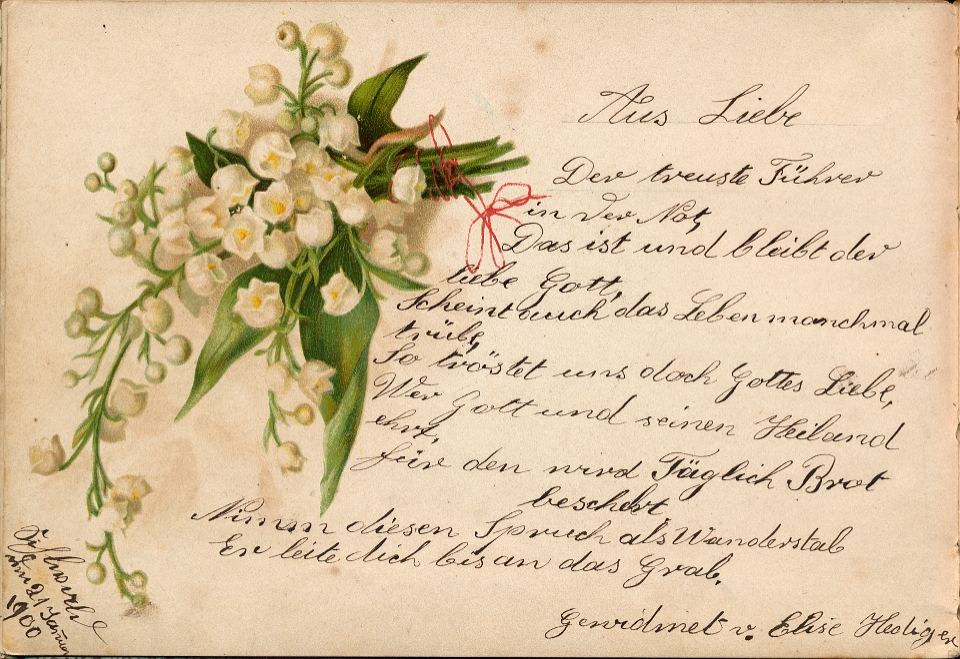 Aus Liebe
Der treuste Führer
in der Not,
Das ist und bleibt der
liebe Gott,
Scheint auch das Leben manchmal
trübe,
So tröstet uns doch Gottes Liebe,
Wer Gott und seinen Heiland
ehrt,
für den wird Täglich Brot
beschert
Nimm diesen Spruch als Wanderstab
Er leite dich bis an das Grab.
Gewidmet v. Elise Hediger
den 21 Januar
1900